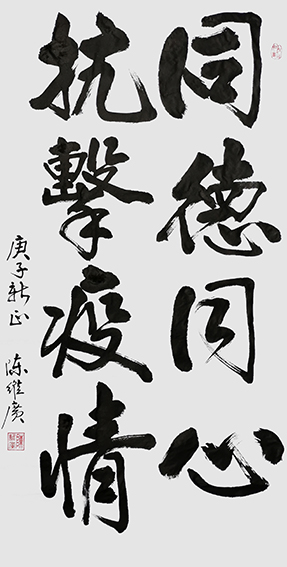 同德同心
抗擊疫情
庚子新正 陈维廣